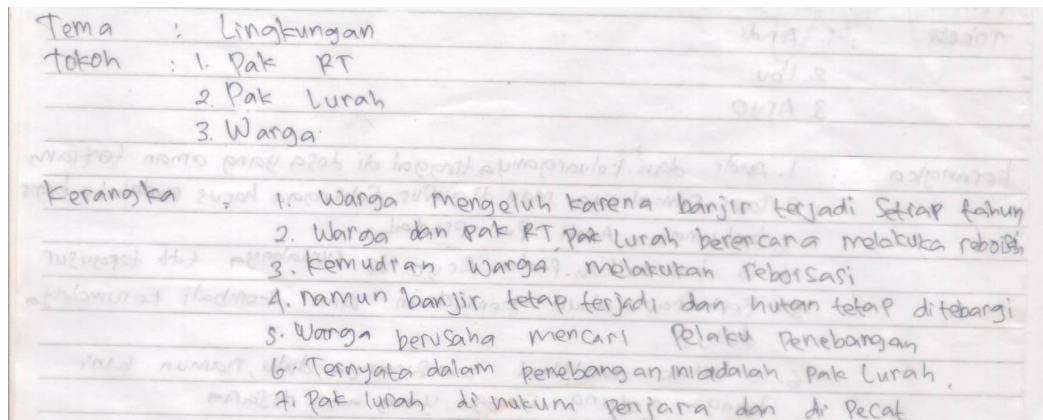 Tema : Lingkungan
tokoh : 1. Pak RT
2. Pak Lurah
3. Warga
kerangka : 1. Warga mengeluh karena banjir terjadi Setiap tahun
2. Warga dan Pak RT, Pak Lurah berencana melakuka reboisasi
3. kemudian warga melakukan reboisasi
4. namun banjir tetap terjadi dan hutan tetap ditebangi
5. Warga berusaha mencari Pelaku Penebangan
6. Ternyata dalam penebangan ini adalah Pak Lurah.
7. Pak lurah di hukum penjara dan di Pecat